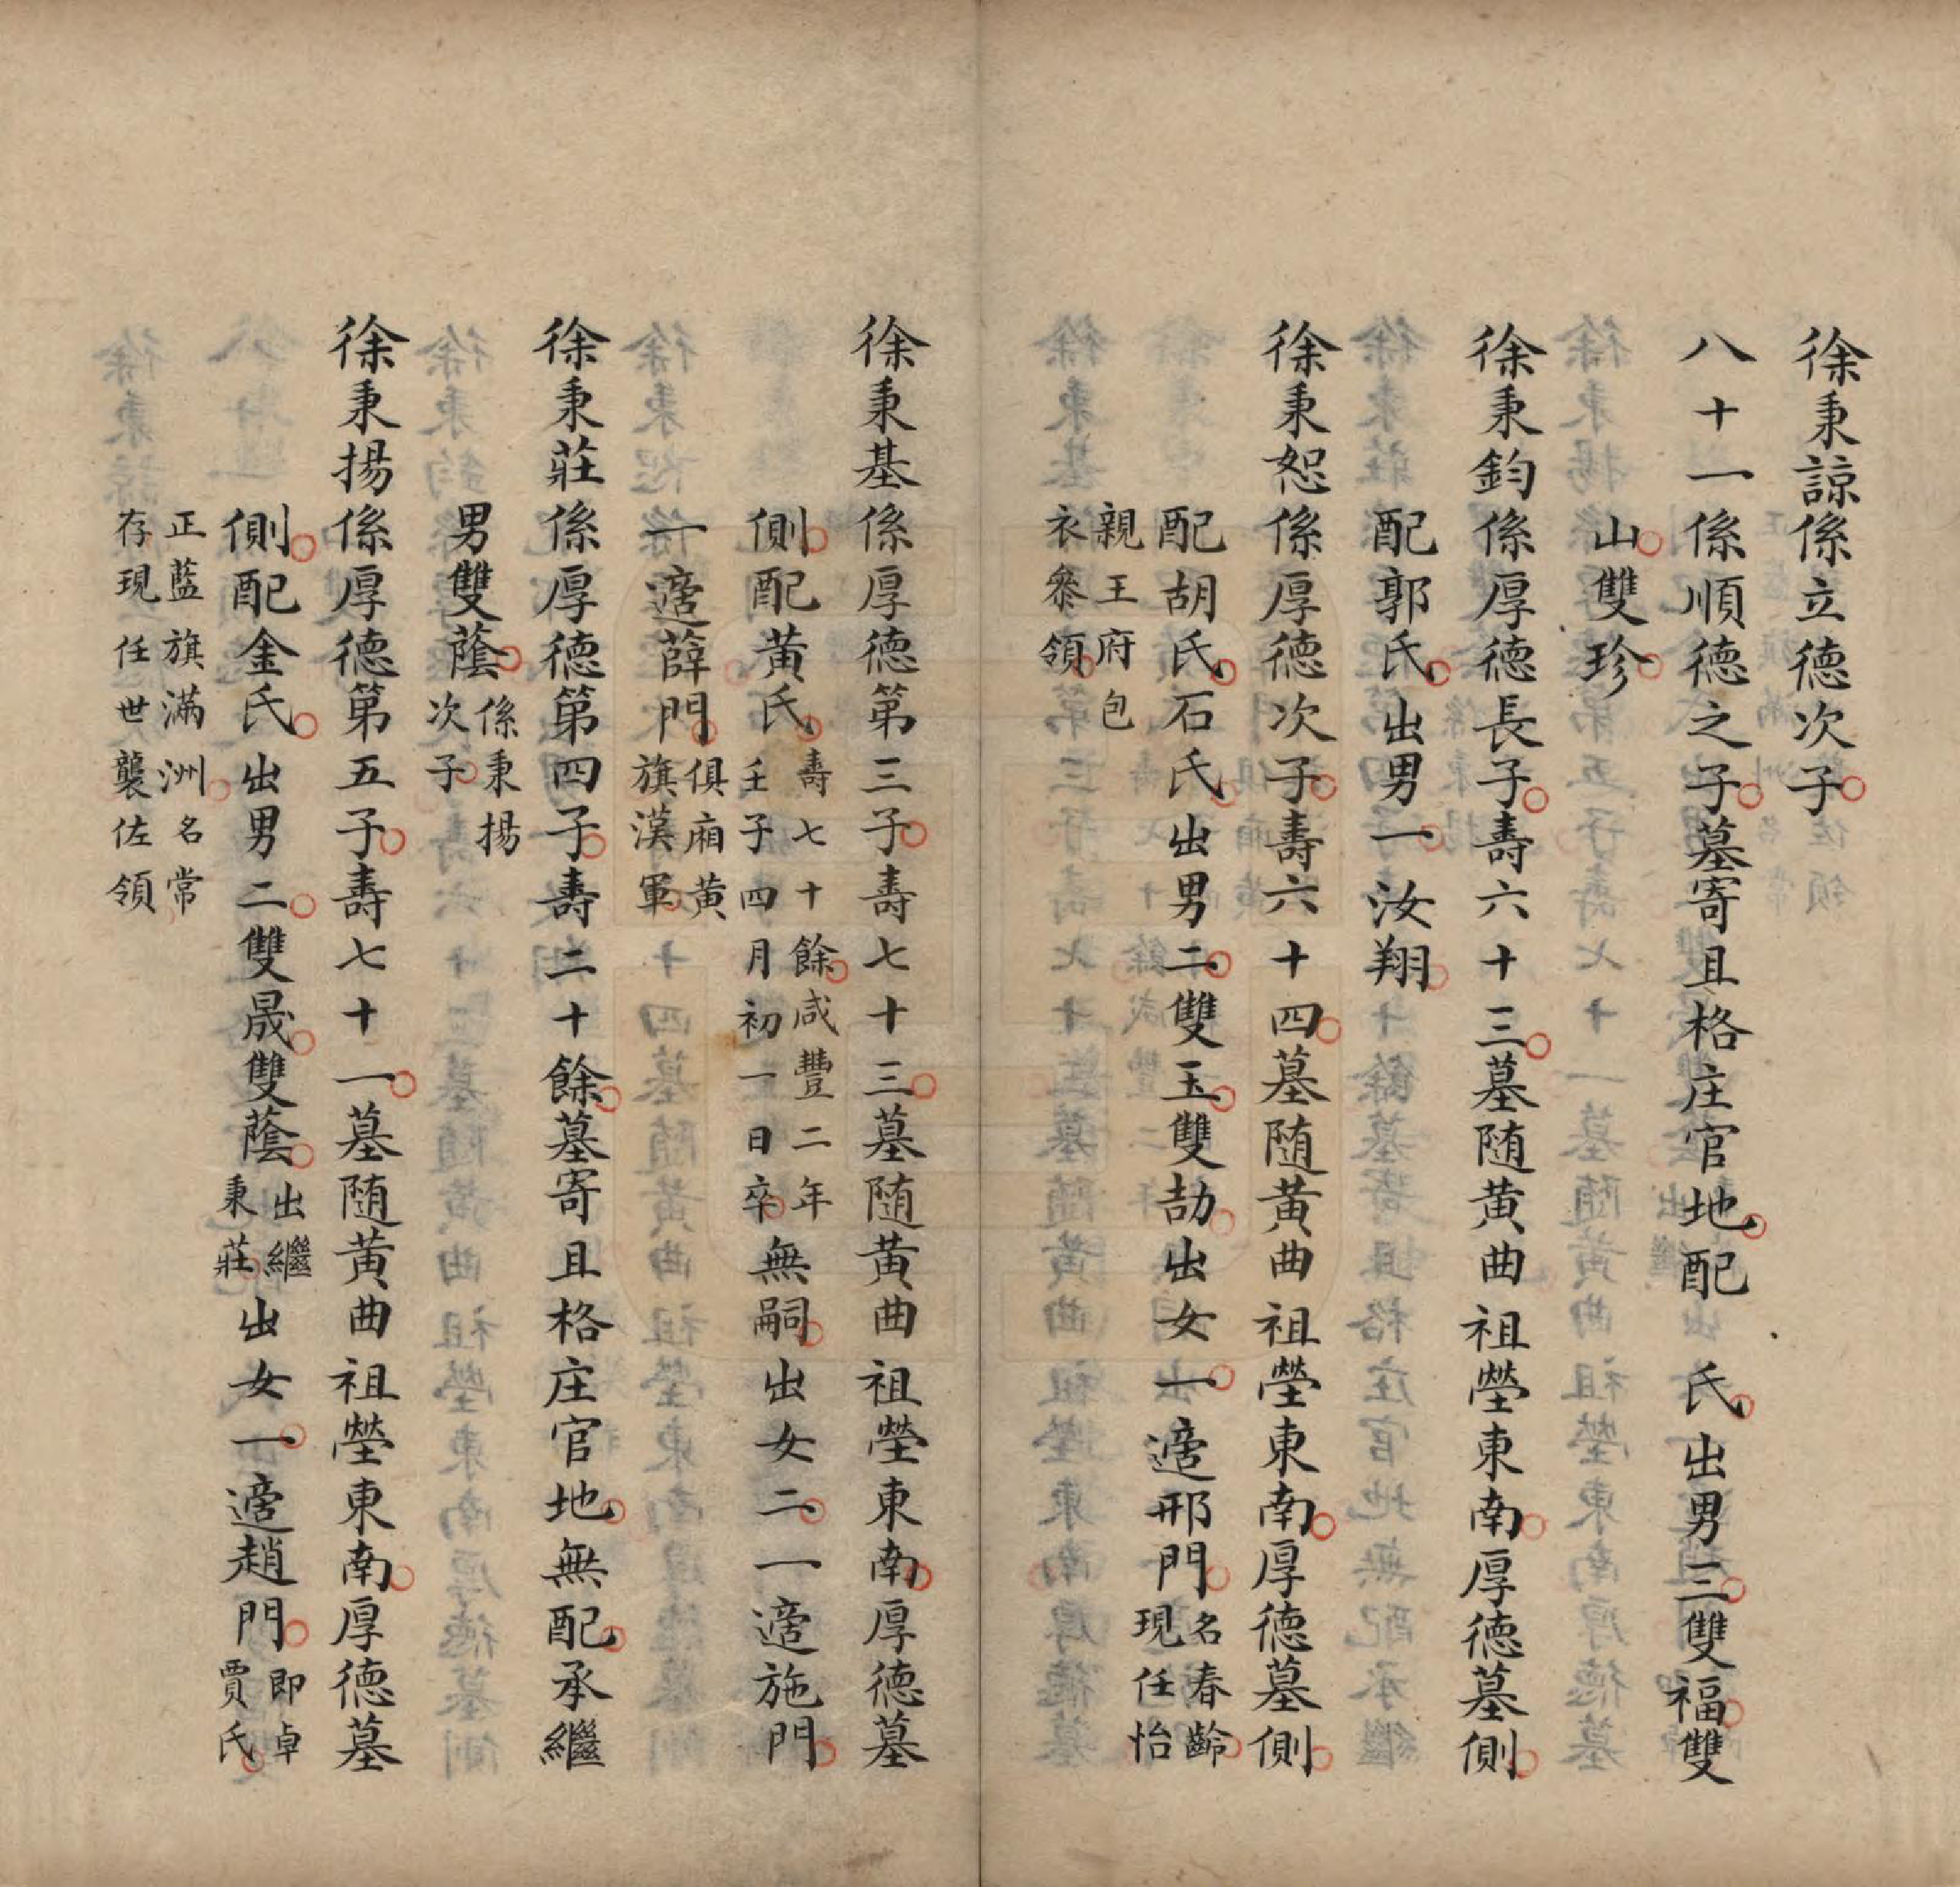 徐秉諒係立德次子
八十一係順德之子墓寄且格庄官地配　氏出男三雙福雙
山雙珍
徐秉鈞係厚德長子壽六十三墓随黄曲祖塋東南厚德墓側
配郭氏出男一汝翔
徐秉恕係厚德次子壽六十四墓随黄曲祖塋東南厚德墓側
配胡氏石氏出男二雙玉雙劼出女一適邢門名春齡
現任怡
親王府包
衣叅領
徐秉基係厚德第三子壽七十三墓随黄曲祖塋東南厚德墓
側配黄氏壽七十餘咸豐二年
壬子四月初一日卒無嗣出女二一適施門
一適薛門俱廂黄
旗漢軍
徐秉莊係厚德第四子壽二十餘墓寄且格庄官地無配承繼
男雙蔭係秉揚
次子
徐秉揚係厚德第五子壽七十一墓随黄曲祖塋東南厚德墓
側配金氏出男二雙晟雙蔭出繼
秉莊出女一適趙門即卓
賈氏
正藍旗滿洲名常
存現任世襲佐領